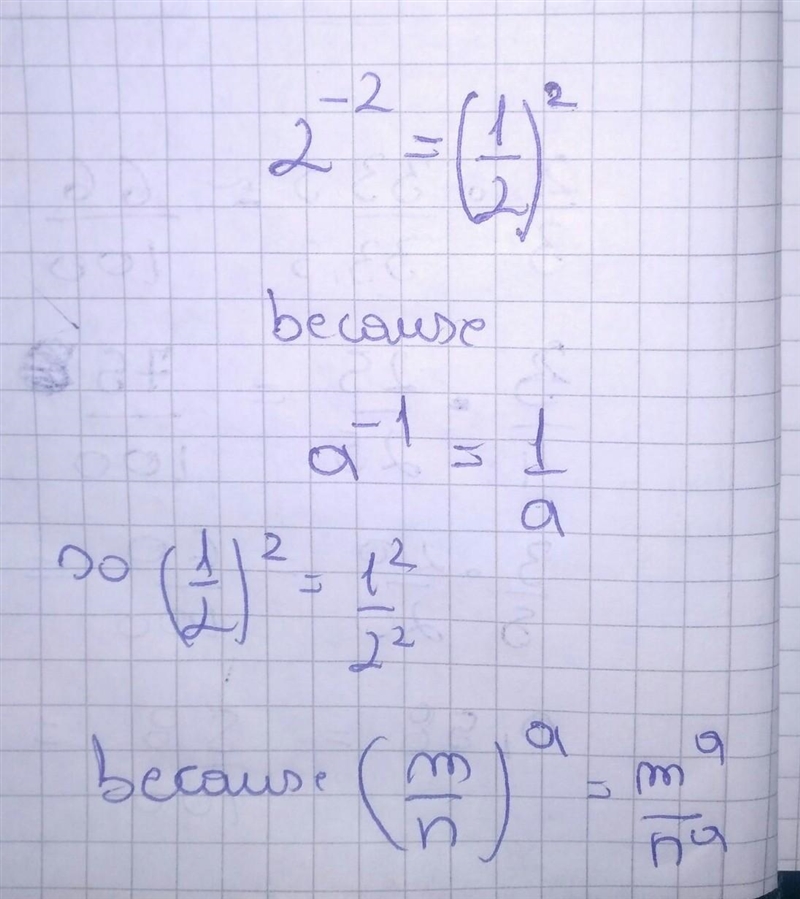 2^-2 = (1/2)^2
because
a^-1 = 1/a
so (1/2)^2 = 1^2/2^2
because (m/n)^a = m^a/n^a